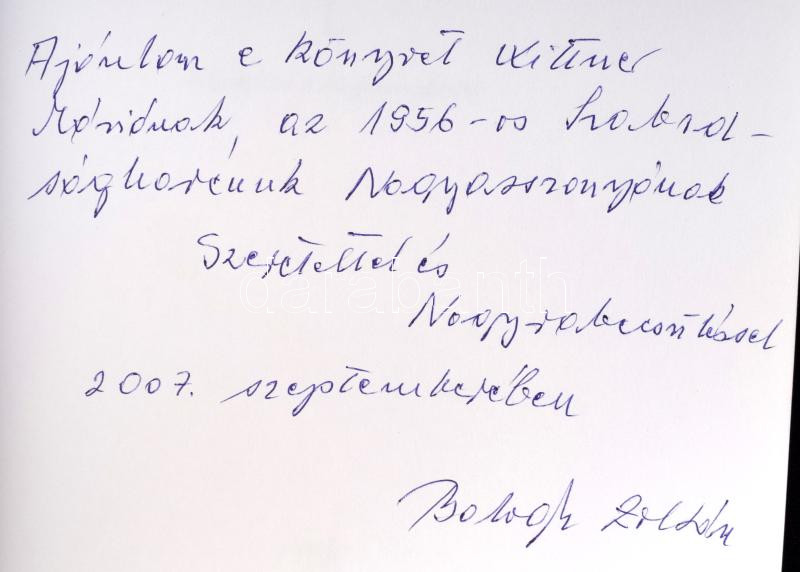 Ajánlom e könyvet Wittner
Máriának, az 1956-os Szabad-
ságharcunk Nagyasszonyának
Szeretettel és
Nagyrabecsüléssel
2007. szeptemberében
Balogh Zoltán
darabanth